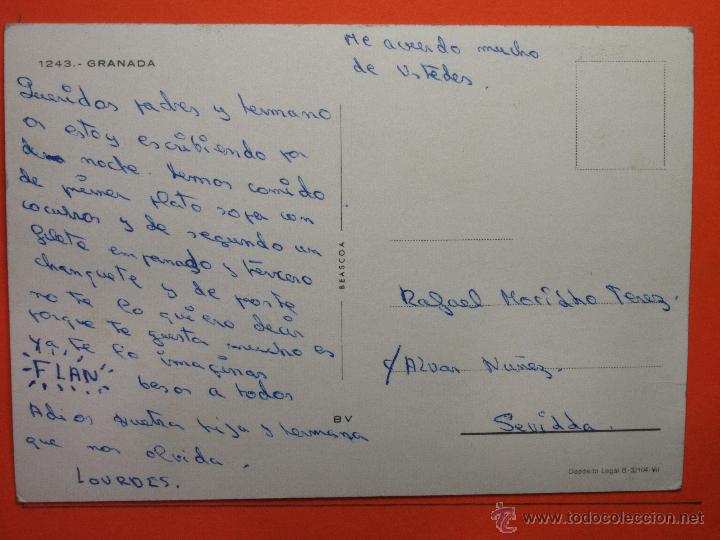 1243.- GRANADA
Me acuerdo mucho
de Ustedes.
Queridos padres y hermano
os estoy escribiendo por
de noche. hemos comido
de primer plato sopa con
y de segundo un
filete empanado y tercero
chanquete y de postre
no te lo quiero decir
porque te gusta mucho es
ya te lo imaginas
FLAN besos a todos
Adios vuestra hija y hermana
que nos olvida.
LOURDES.
BEASCOA
BV
Rafael Perez.
C/ Alvar Nuñez.
Sevidda.
Depósito Legal B-32104-VII
© www.todocoleccion.net